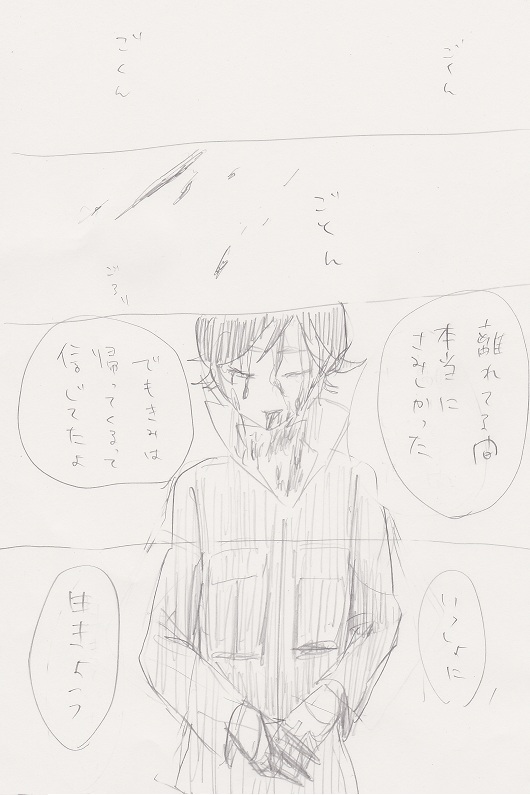 ごくん
ごくん
ごとん
ごろり
離れてる間
本当に
さみしかった
でもきみは
帰ってくるって
信じてたよ
いっしょに
生きよっ